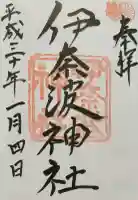 奉拝
伊奈波神社
平成三十年一月四日